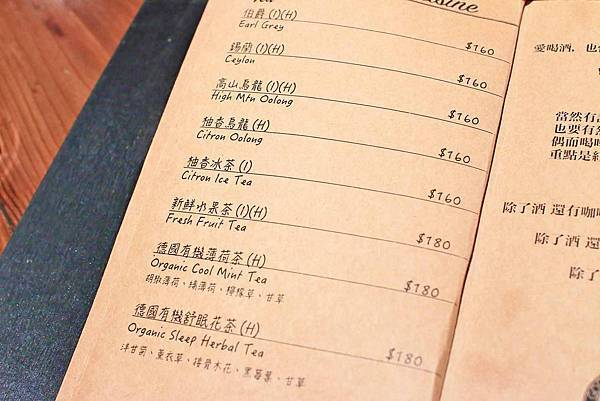 Tea
伯爵 (I)(H)
Earl Grey $160
錫蘭 (I)(H)
Ceylon $160
高山烏龍 (I)(H)
High Mtn Oolong $160
柚香烏龍 (H)
Citron Oolong $160
柚香冰茶 (I)
Citron Ice Tea $160
新鮮水果茶 (I)(H)
Fresh Fruit Tea $180
德國有機薄荷茶 (H)
Organic Cool Mint Tea $180
胡椒薄荷、綠薄荷、檸檬草、甘草
德國有機舒眠花茶 (H)
Organic Sleep Herbal Tea $180
洋甘菊、薰衣草、接骨木花、黑莓葉、甘草
愛喝酒，也
當然有
也要有
偶而喝
重點是
除了酒 還有咖
除了酒 還
除了